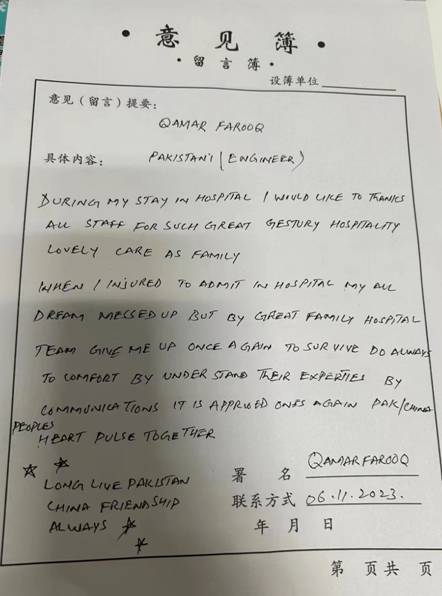 意见簿
留言簿
设簿单位
意见（留言）提要：
QAMAR FAROOQ
具体内容： PAKISTAN'I (ENGINEER)
DURING MY STAY IN HOSPITAL I WIULD LIKE TO THANKS
ALL STAFF FOR SUCH GREAT GESTURY HOSPITALITY
LOVELY CARE AS FAMILY
WHEN I INJURED TO ADMIT IN HOSPITAL MY ALL
DREAM MESSED UP BUT BY GREAT FAMILY HOSPITAL
TEAM GIVE ME UP ONCE AGAIN TO SURVIVE DO ALWAYS
TO COMFORT BY UNDERSTAND THEIR EXPERTIES BY
COMMUNICATIONS IT IS APPROVED ONES AGAIN PAK/CHINA
PEOPLES
HEART PULSE TOGETHER
LONG LIVE PAKISTAN
CHINA FRIENDSHIP
ALWAYS
署名 QAMAR FAROOQ
联系方式 06.11.2023.
年 月 日
第 页共 页